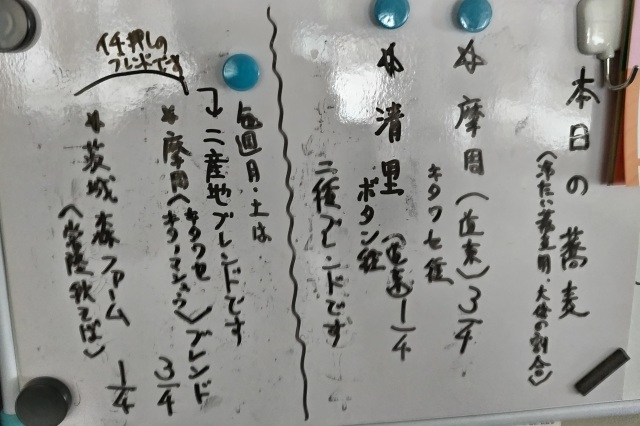 本日の蕎麦
(冷たい蕎麦用、大体の割合)
* 摩周(道東) 3/4
キタワセ種
* 清里(道東) 1/4
ボタン種
二種ブレンドです
毎週月・土は
→二産地ブレンドです
* 摩周〈キタワセ キタノマシュウ〉ブレンド 3/4
* 茨城 森ファーム 1/4
〈常陸秋そば〉
イチ押しの
ブレンドです